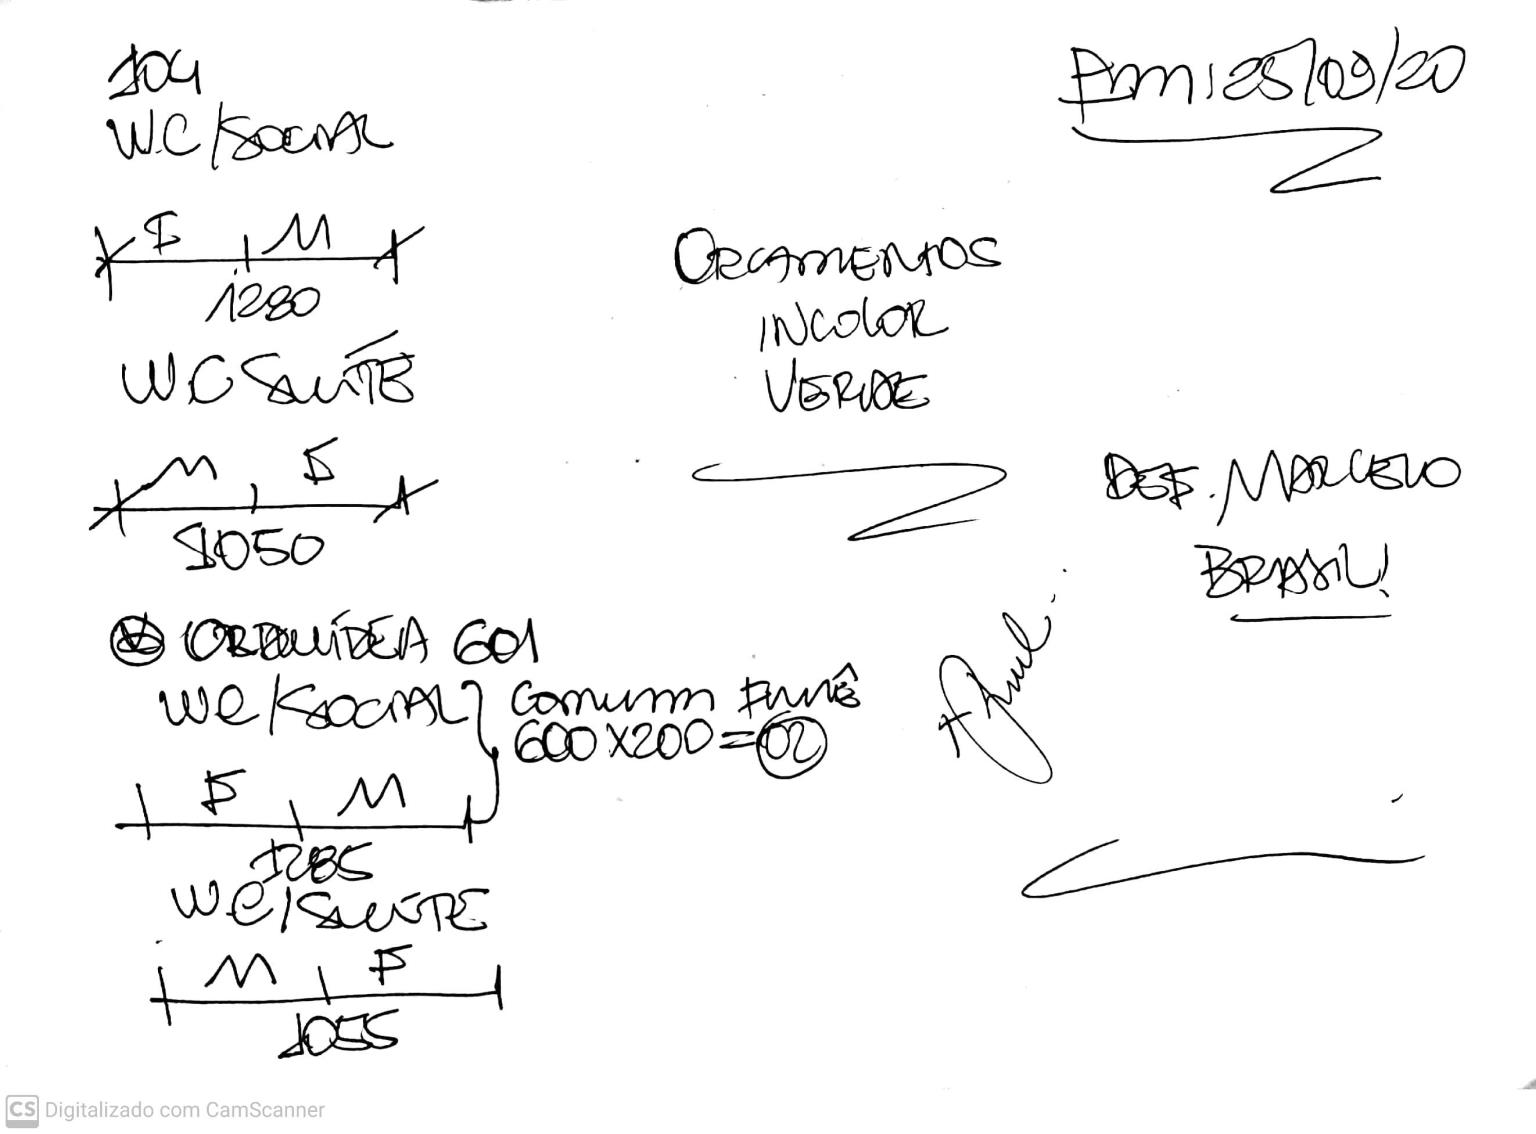 104
WC/SOCIAL
F M
1280
WC SUÍTE
M F
1050
ORQUÍDEA 601
WC/SOCIAL
COMUM FUMÊ
600X200=02
F M
1285
WC/SUÍTE
M F
1055
Em: 25/09/20
ORCAMENTOS
INCOLOR
VERDE
REF. MARCELO
BRASIL!
CS Digitalizado com CamScanner